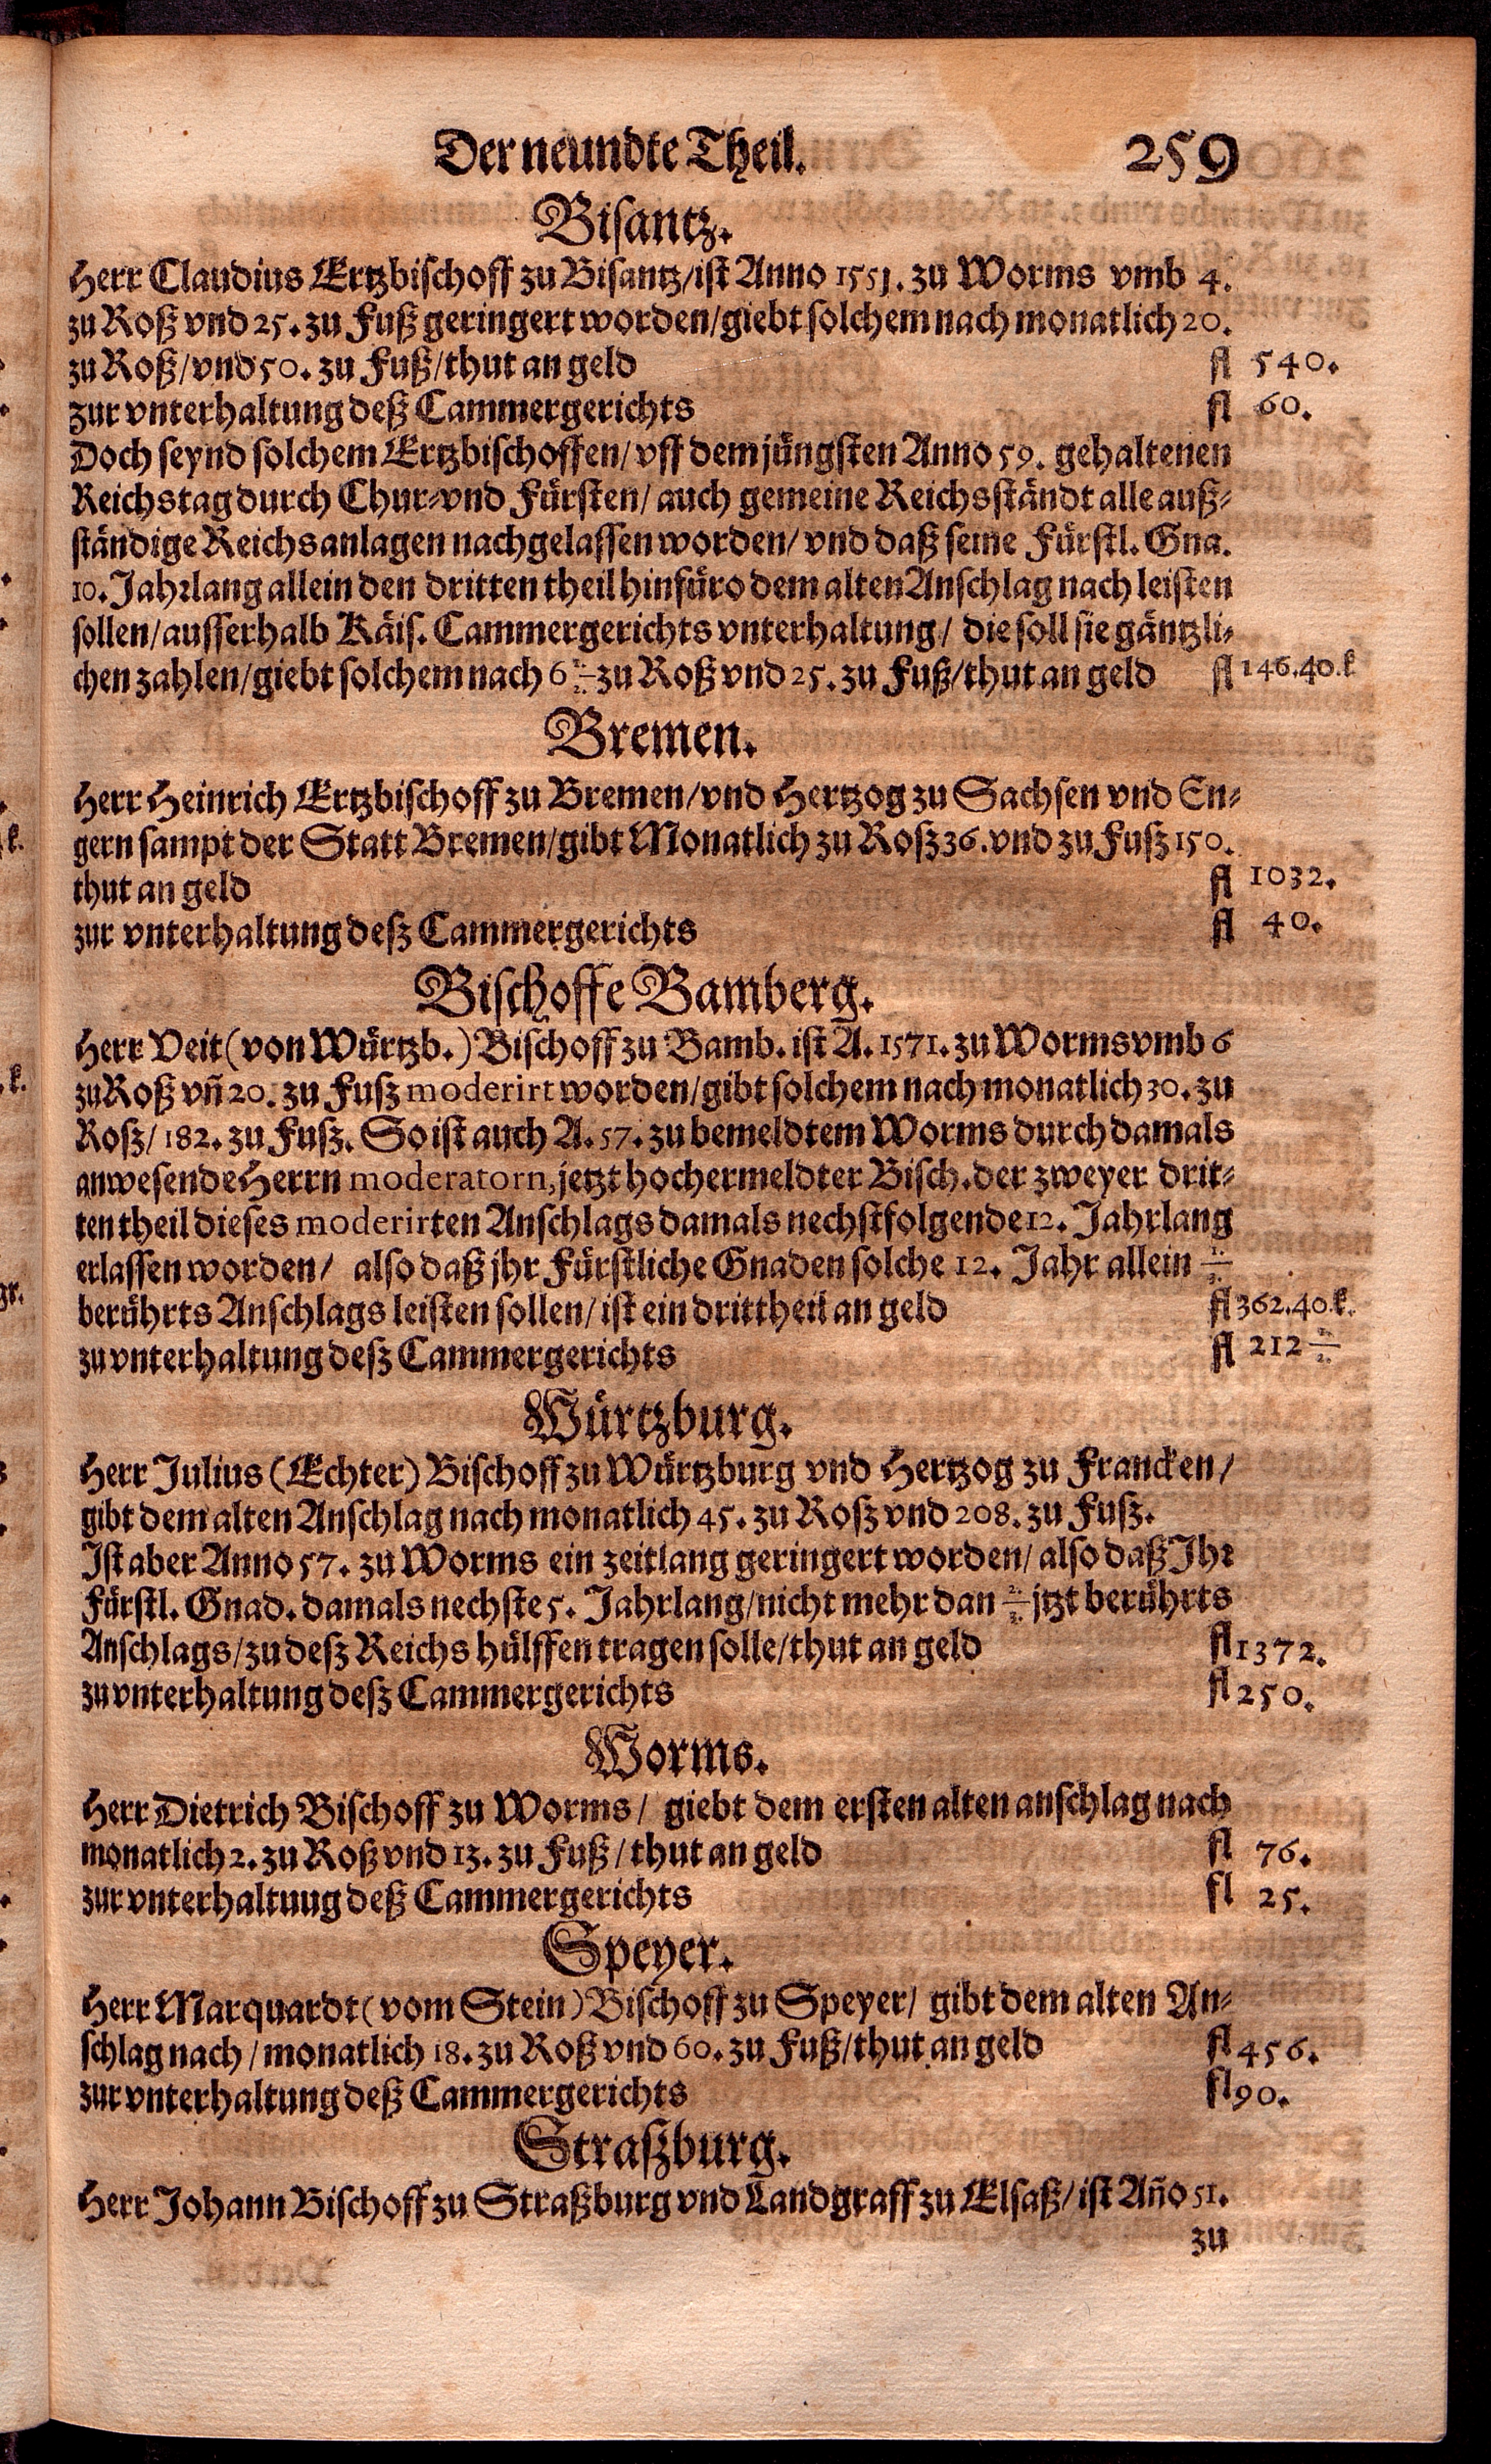 Der neundte Theil. 259
Bisantz.
Herr Claudius Ertzbischoff zu Bisantz/ist Anno 1551. zu Worms vmb 4.
zu Roß vnd 25. zu Fuß geringert worden/giebt solchem nach monatlich 20.
zu Roß/vnd 50. zu Fuß/thut an geld fl 540.
zur vnterhaltung deß Cammergerichts fl 60.
Doch seynd solchem Ertzbischoffen/vff dem jüngsten Anno 59. gehaltenen
Reichstag durch Chur-vnd Fürsten/auch gemeine Reichsständt alle auß-
ständige Reichsanlagen nachgelassen worden/vnd daß seine Fürstl. Gna.
10. Jahrlang allein den dritten theil hinfüro dem alten Anschlag nach leisten
sollen/ausserhalb Käis. Cammergerichts vnterhaltung/ die soll sie gäntzli-
chen zahlen/giebt solchem nach 6 1/2 zu Roß vnd 25. zu Fuß/thut an geld fl 146.40.k
Bremen.
Herr Heinrich Ertzbischoff zu Bremen/vnd Hertzog zu Sachsen vnd En-
gern sampt der Statt Bremen/gibt Monatlich zu Rosz 36. vnd zu Fusz 150.
thut an geld fl 1032.
zur vnterhaltung desz Cammergerichts fl 40.
Bischoffe Bamberg.
Herr Veit (von Würtzb.) Bischoff zu Bamb. ist A. 1571. zu Worms vmb 6
zu Roß vñ 20. zu Fusz moderirt worden/gibt solchem nach monatlich 30. zu
Rosz/182. zu Fusz. So ist auch A. 57. zu bemeldtem Worms durch damals
anwesende Herrn moderatorn, jetzt hochermeldter Bisch. der zweyer drit-
ten theil dieses moderirten Anschlags damals nechstfolgende 12. Jahrlang
erlassen worden/ also daß jhr Fürstliche Gnaden solche 12. Jahr allein
berührts Anschlags leisten sollen/ist ein drittheil an geld fl 362.40.k.
zu vnterhaltung desz Cammergerichts fl 212 1/2
Würtzburg.
Herr Julius (Echter) Bischoff zu Würtzburg vnd Hertzog zu Francken/
gibt dem alten Anschlag nach monatlich 45. zu Rosz vnd 208. zu Fusz.
Ist aber Anno 57. zu Worms ein zeitlang geringert worden/also daß Ihr
Fürstl. Gnad. damals nechste 5. Jahrlang/nicht mehr dan jtzt berührts
Anschlags/zu desz Reichs hülffen tragen solle/thut an geld fl 1372.
zu vnterhaltung desz Cammergerichts fl 250.
Worms.
Herr Dietrich Bischoff zu Worms/ giebt dem ersten alten anschlag nach
monatlich 2. zu Roß vnd 13. zu Fuß/thut an geld fl 76.
zur vnterhaltuug deß Cammergerichts fl 25.
Speyer.
Herr Marquardt (vom Stein) Bischoff zu Speyer/ gibt dem alten An-
schlag nach/monatlich 18. zu Roß vnd 60. zu Fuß/thut an geld fl 456.
zur vnterhaltung deß Cammergerichts fl 90.
Straszburg.
Herr Johann Bischoff zu Straßburg vnd Landgraff zu Elsaß/ist Año 51.
zu